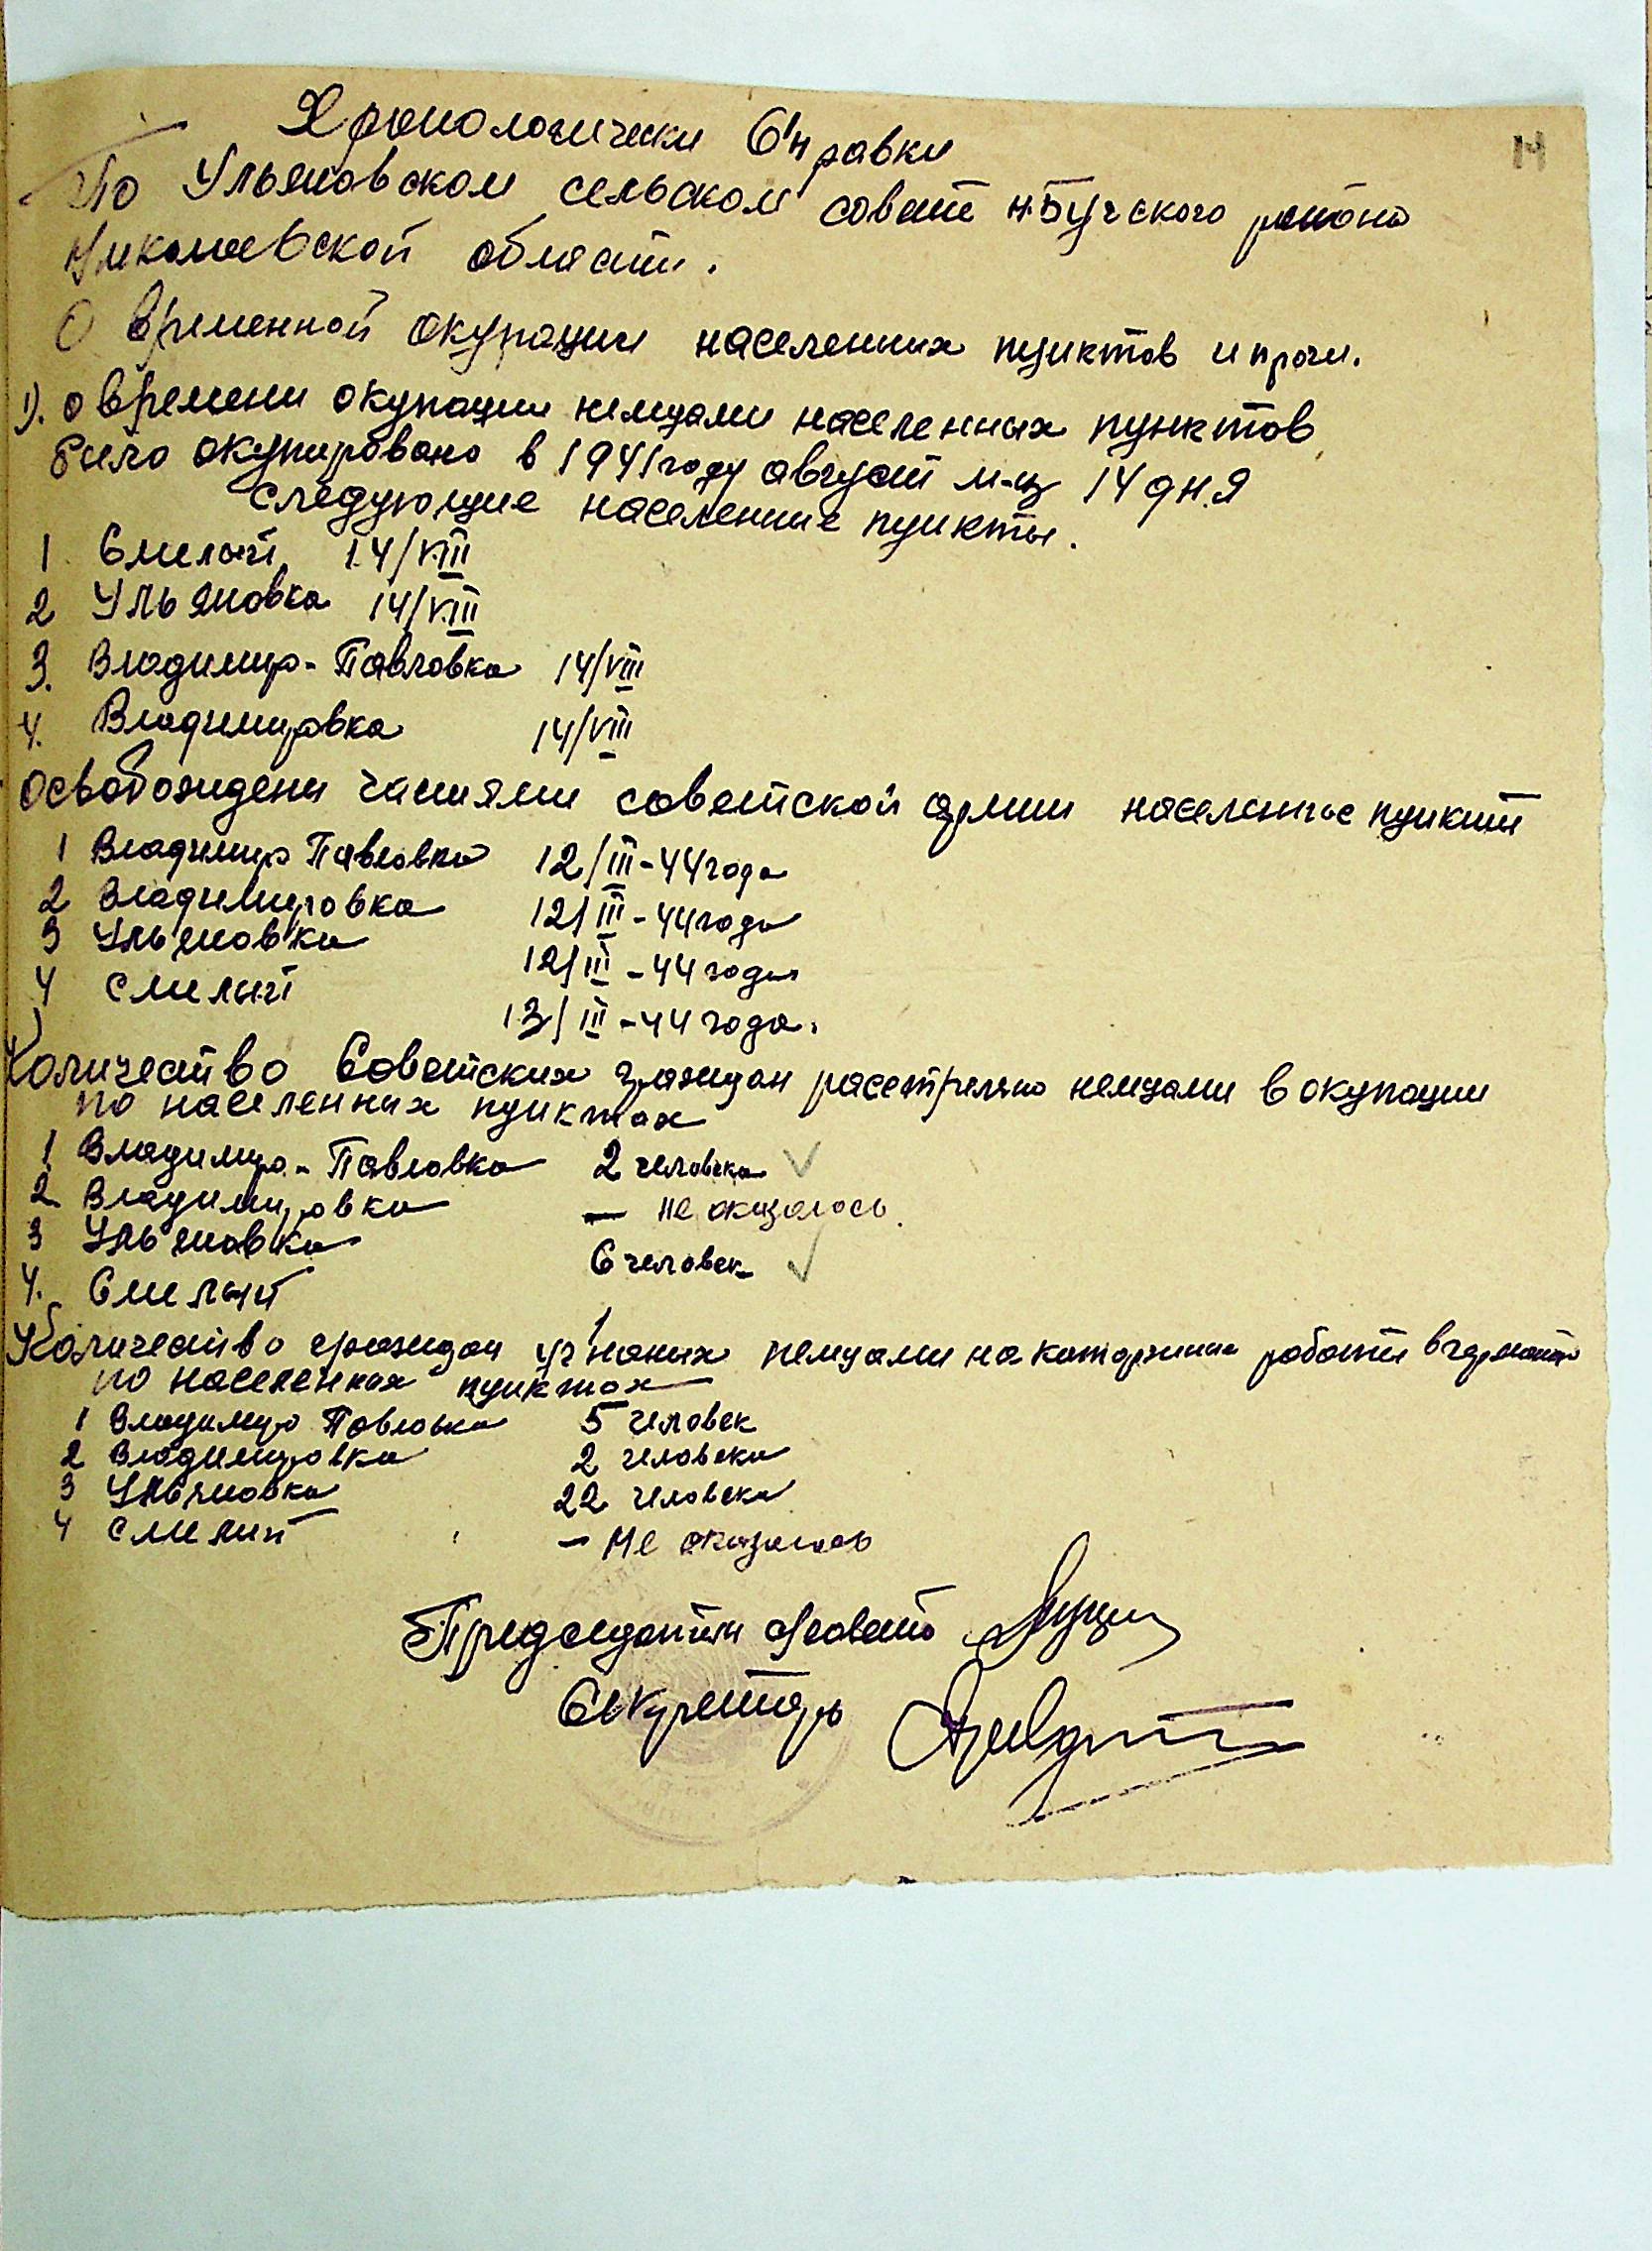 Хронологически Справки
14
По Ульяновском сельском совете Н.Бугского района
Николаевской области.
О временной окупации населенних пунктов и прочи.
1). о времени окупации немцами населенных пунктов
было окупировано в 1941 году август м-ц 14 дня
следующие населенние пункты.
1 Смелый 14/VIII
2 Ульяновка 14/VIII
3. Владимир-Павловка 14/VIII
4. Владимировка 14/VIII
Освобождени частями советской армии населенные пункти
1 Владимиро Павловка 12/III-44 года
2 Владимировка 12/III-44 года
3 Ульяновка 12/III-44 года
4 Смелый 13/III-44 года.
Количество Советских граждан расстреляно немцами в окупации
по населенних пунктах
1 Владимиро-Павловка 2 человека
2 Владимировка — не оказалось.
3 Ульяновка 6 человек
4. Смелый
Количество граждан угнаних немцами на каторжние работи в
по населенних пунктах
1 Владимиро Павловка 5 человек
2 Владимировка 2 человека
3 Ульяновка 22 человека
4 Смелий — не оказалось
Председатель с/совета
Секретарь